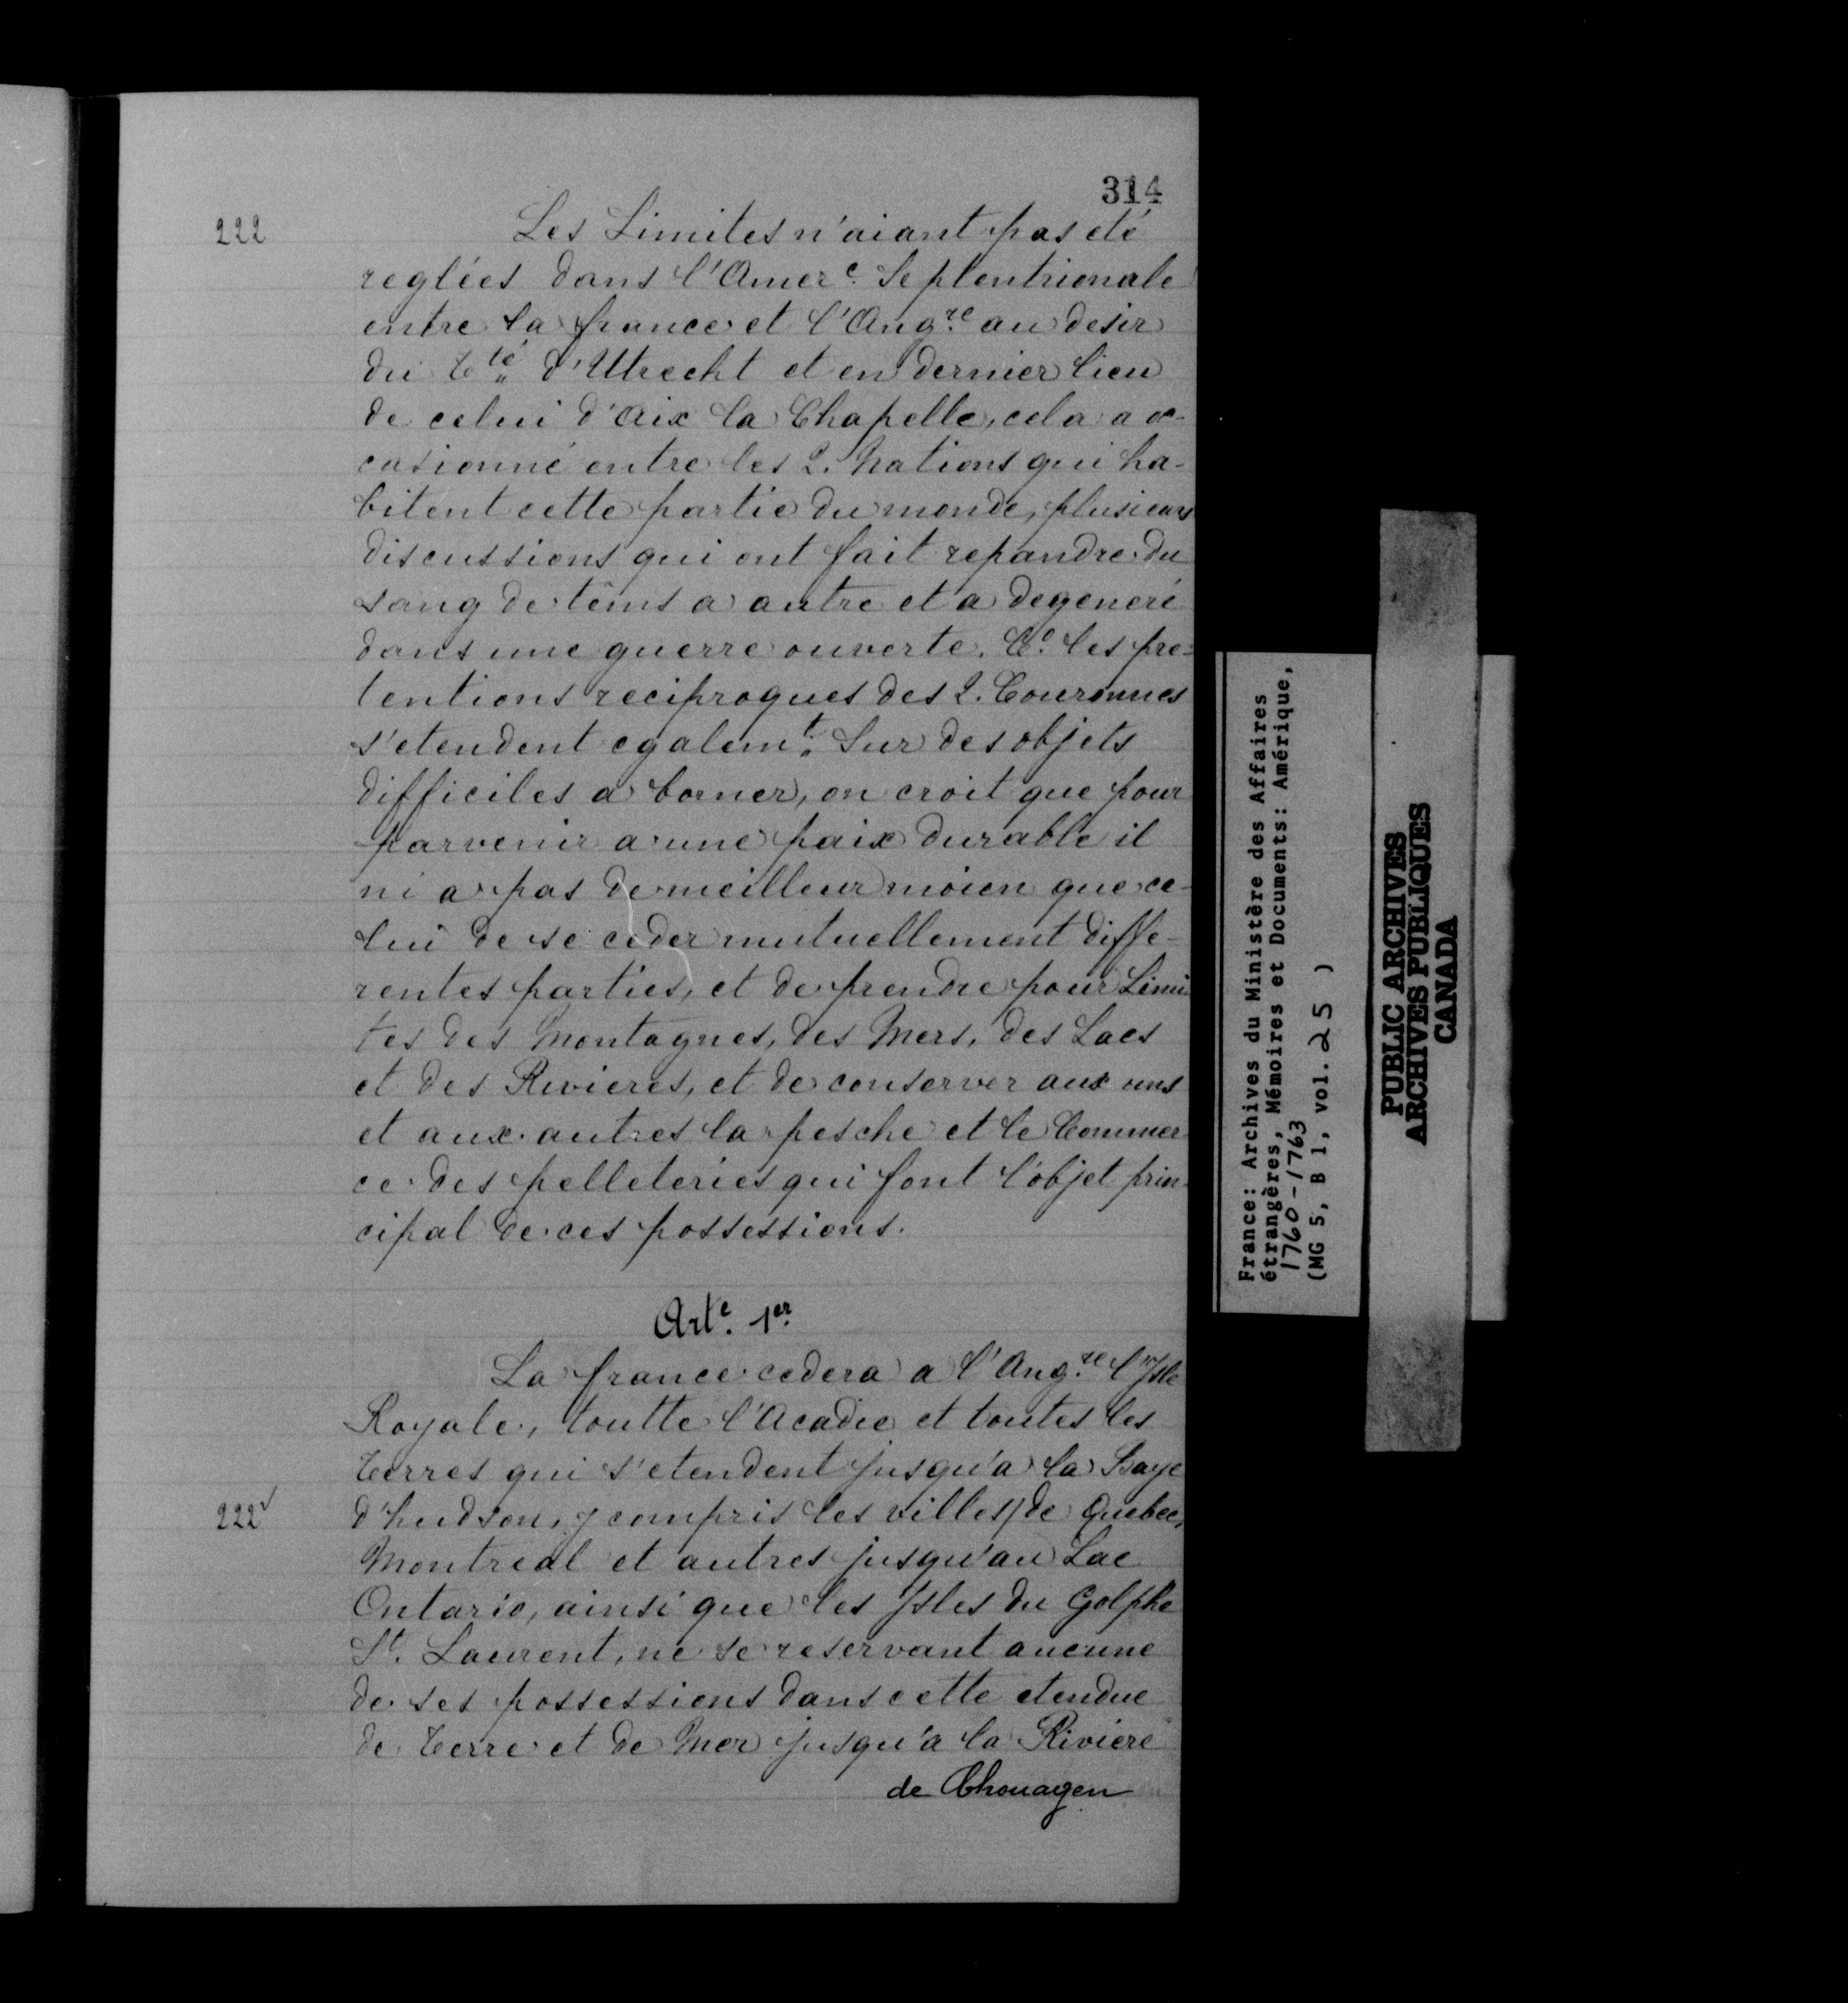 314
222
Les Limites n'aiant pas eté
reglées dans l'Amer.e Septentrionale
entre la france et l'Ang.re au desir
du T.té d'Utrecht et en dernier lieu
de celui d'Aix la Chapelle, cela a oc-
casionné entre les 2. Nations qui ha-
bitent cette partie du monde, plusieurs
discussions qui ont fait repandre du
sang de têms a autre et a degeneré
dans une guerre ouverte. C.e les pre=
tentions reciproques des 2. Couronnes
s'etendent egalem.t Sur des objets
difficiles a borner, on croit que pour
parvenir a une paix durable il
ni a pas de meilleur moien que ce-
lui de se ceder mutuellement diffe-
rentes parties, et de prendre pour Limi
tes des Montagnes, des Mers, des Lacs
et des Rivieres, et de conserver aux uns
et aux autres la pesche et le Commer
ce des pelleteries qui font l'objet prin-
cipal de ces possessions.
Art.e 1.er
La france cedera a l'Ang.re l'Isle
Royale, toutte l'Acadie et toutes les
terres qui s'etendent jusqu'a la Baye
222v
d'hudson, y compris les villes/de Quebec,
Montreal et autres jusqu'au Lac
Ontario, ainsi que les Isles du Golphe
St. Laurent, ne se reservant aucune
de ses possessions dans cette etendue
de terre et de Mer jusqu'a la Riviere
de Chouagen
France: Archives du Ministère des Affaires
étrangères, Mémoires et Documents: Amérique,
1760-1763
(MG 5, B 1, vol. 25 )
PUBLIC ARCHIVES
ARCHIVES PUBLIQUES
CANADA